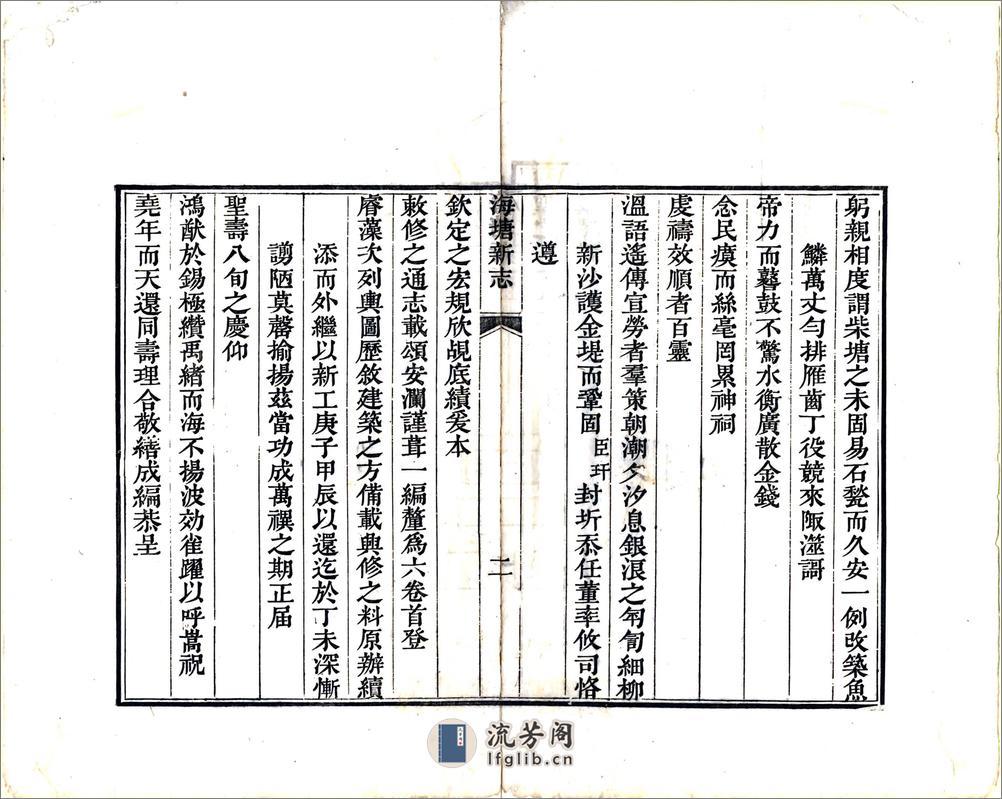 躬親相度謂柴塘之未固易石甃而久安一例改築魚
鱗萬丈勻排雁齒丁役競來陾澨謌
帝力而鼛鼓不驚水衡廣散金錢
念民瘼而絲毫罔累神祠
虔禱效順者百靈
溫語遙傳宣勞者羣策朝潮夕汐息銀浪之匉訇細柳
新沙護金堤而鞏固臣玕封圻忝任董率攸司恪
遵
海塘新志
二
欽定之宏規欣覩底績爰本
敕修之通志載頌安瀾謹葺一編釐爲六卷首登
睿藻次列輿圖歷敘建築之方備載興修之料原辦續
添而外繼以新工庚子甲辰以還迄於丁未深慚
謭陋莫罄揄揚茲當功成萬禩之期正屆
聖壽八旬之慶仰
鴻猷於錫極纘禹緒而海不揚波効雀躍以呼嵩祝
堯年而天還同壽理合敬繕成編恭呈
流芳阁
lfglib.cn